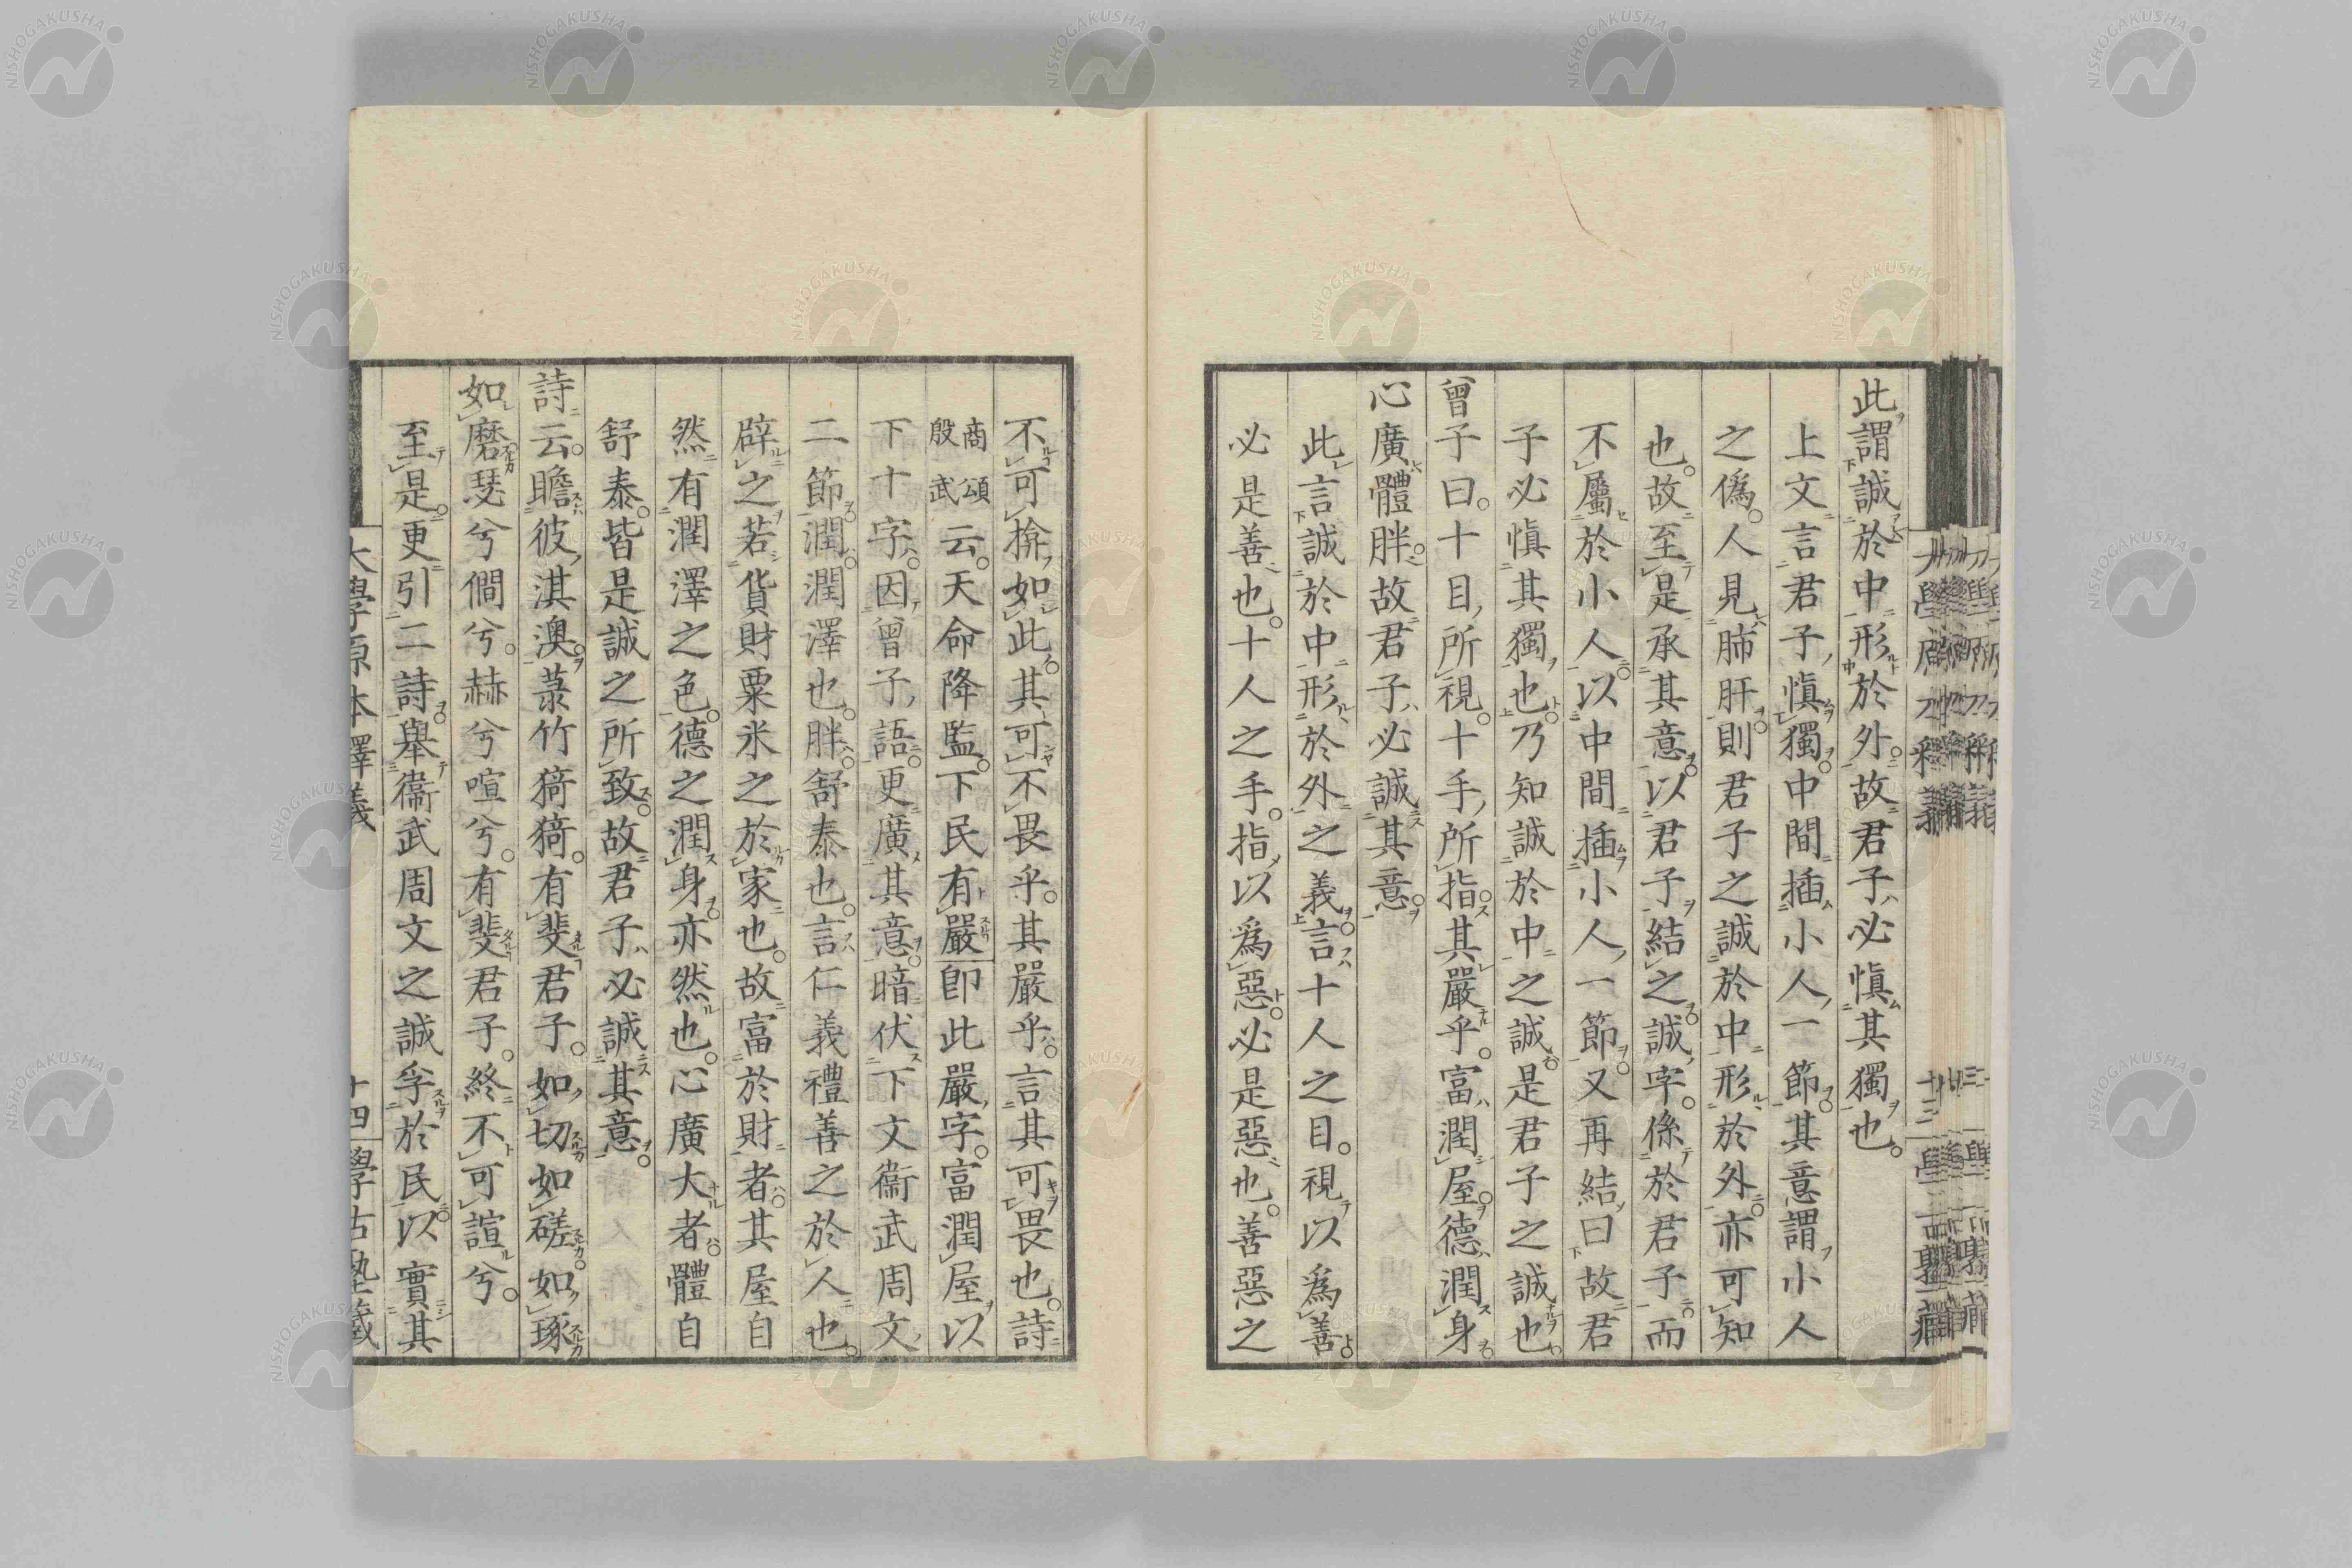 此謂誠於中形於外。故君子必愼其獨也。
上文言君子愼獨。中間插小人一節。其意謂小人
之僞。人見肺肝。則君子之誠於中形於外。亦可知
也。故至是承其意。以君子結之。誠字。係於君子。而
不屬於小人。以中間插小人一節。又再結曰故君
子必愼其獨也。乃知誠於中之誠。是君子之誠也。
曾子曰。十目所視。十手所指。其嚴乎。富潤屋。德潤身。
心廣體胖。故君子必誠其意。
此言誠於中形於外之義。言十人之目。視以爲善。
必是善也。十人之手。指以爲惡。必是惡也。善惡之
不可揜如此。其可不畏乎。其嚴乎。言其可畏也。詩
商頌殷武云。天命降監。下民有嚴。卽此嚴字。富潤屋以
下十字。因曾子語。更廣其意。暗伏下文衞武周文
二節。潤。潤澤也。胖。舒泰也。言仁義禮善之於人也。
辟之若貨財粟米之於家也。故富於財者。其屋自
然有潤澤之色。德之潤身。亦然也。心廣大者。體自
舒泰。皆是誠之所致。故君子必誠其意。
詩云。瞻彼淇澳。菉竹猗猗。有斐君子。如切如磋。如琢
如磨。瑟兮僩兮。赫兮喧兮。有斐君子。終不可諠兮。
至是。更引二詩。擧衞武周文之誠孚於民。以實其
大學原本釋義 十四 學古塾藏